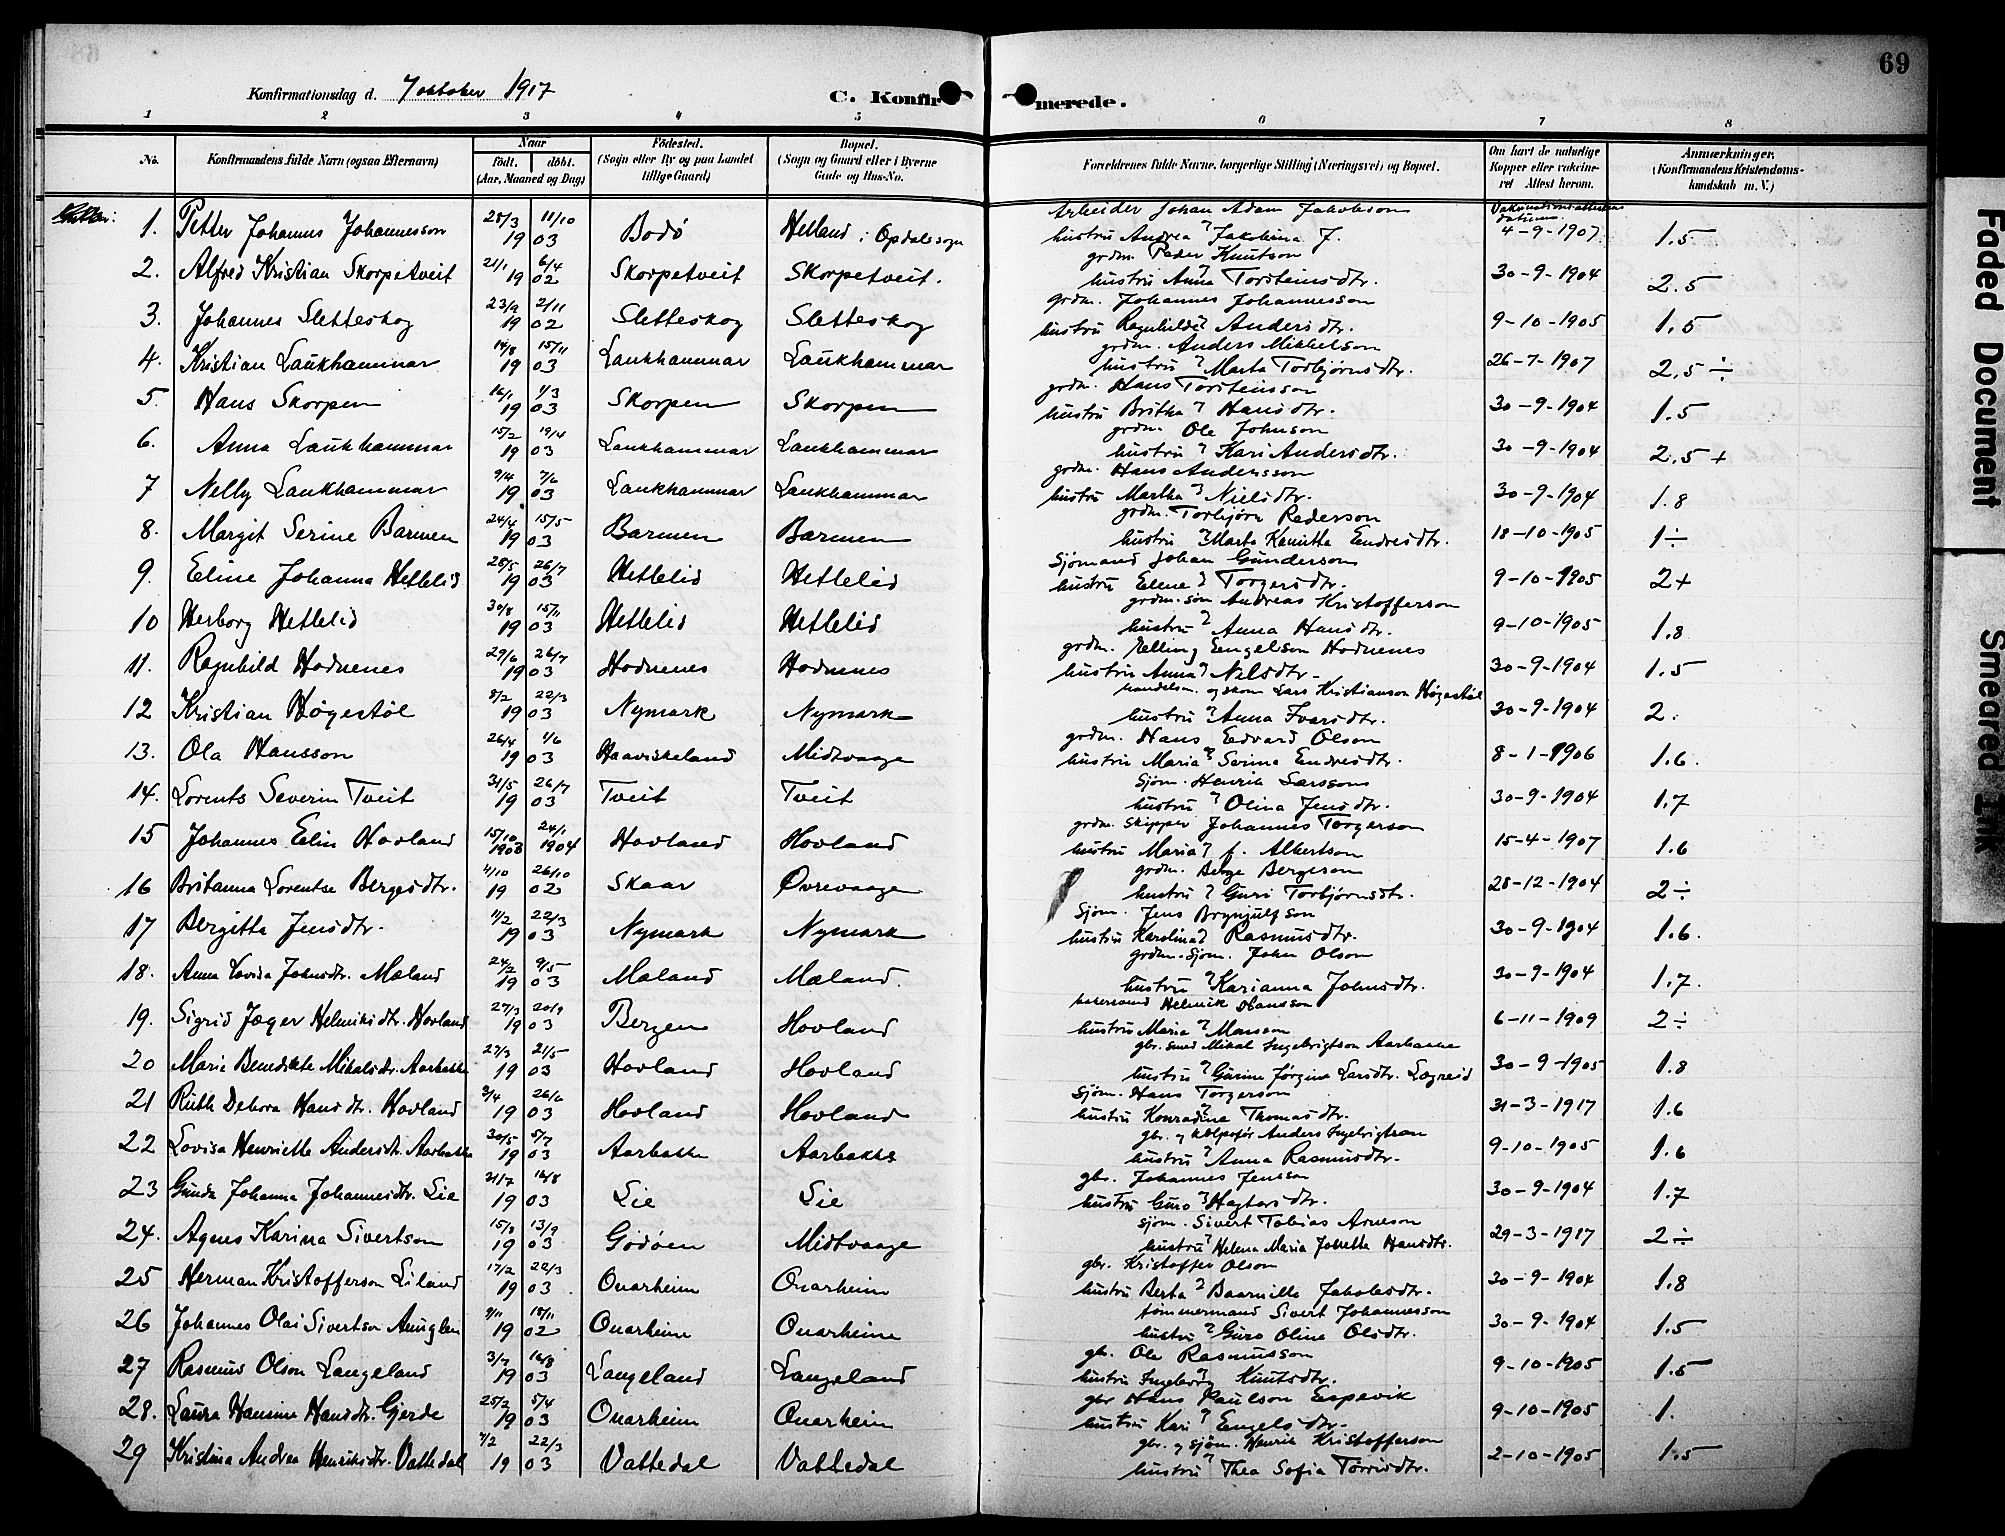 69
Konfirmationsdag d. 7 oktober 1917
C. Konfir merede.
1 2 3 4 5 6 7 8
No. Konfirmandens fulde Navn (ogsaa Efternavn) Naar født. døbt. (Aar, Maaned og Dag) Fødested. (Sogn eller By og paa Landet tillige Gaard) Bopæl. (Sogn og Gaard eller i Byerne Gade og Hus-No. Forældrenes fulde Navne, borgerlige Stilling (Næringsvei) og Bopæl. Om havt de naturlige Kopper eller vakcineret Attest herom. Anmærkninger. (Konfirmandens Kristendomskundskab m. V.)
1. Petter Johannes Johannesson 28/3 1903 11/10 Bodø Helland i Opdals sogn Arbeider Johan Adam Jakobson hustru Andrea Jakobina J. 4-9-1907 1.5
2. Alfred Kristian Skorpetveit 21/1 1902 6/4 Skorpetveit Skorpetveit. grdm. Peder Knutson hustru Anna Torsteinsdtr. 30-9-1904 2.5
3. Johannes Sletteskog 23/9 1902 2/11 Sletteskog Sletteskog grdm. Johannes Johannesson hustru Ragnhilde Andersdtr. 9-10-1905 1.5
4. Kristian Laukhammar 14/8 1903 15/11 Laukhammar Laukhammar grdm. Anders Mikkelson hustru Marta Torbjørnsdtr. 26-7-1907 2.5 ÷
5. Hans Skorpen 16/1 1903 1/3 Skorpen Skorpen grdm. Hans Torsteinsson hustru Britha Hansdtr. 30-9-1904 1.5
6. Anna Laukhammar 15/2 1903 19/4 Laukhammar Laukhammar grdm. Ole Johnson hustru Kari Andersdtr. 30-9-1904 2.5 +
7 Nelly Laukhammar 9/4 1903 7/6 Laukhammar Laukhammar grdm. Hans Andersson hustru Martha Nielsdtr. 30-9-1904 1.8
8. Margit Serine Barmen 24/4 1903 15/5 Barmen Barmen grdm. Torbjørn Pederson hustru Marta Kanutta Endresdtr. 18-10-1905 1÷
9. Eline Johanna Hetlelid 28/5 1903 26/7 Hetlelid Hetlelid Sjømand Johan Gunderson hustru Elene Torgersdtr. 9-10-1905 2+
10 Herborg Hetlelid 30/8 1903 15/11 Hetlelid Hetlelid grdm. søn Andreas Kristofferson hustru Anna Hansdtr. 9-10-1905 1.8
11. Ragnhild Hodnenes 29/6 1903 26/7 Hodnenes Hodnenes grdm. Elling Engelson Hodnenes hustru Anna Nilsdtr. 30-9-1904 1.5
12 Kristian Høgestøl 8/2 1903 22/3 Nymark Nymark Lars Kristianson Høgestøl hustru Anna Ivarsdtr. 30-9-1904 2.
13. Ola Hansson 26/4 1903 1/6 Haaviskeland Midtvaage grdm. Hans Edvard Olson hustru Maria Serina Endresdtr. 8-1-1906 1.6.
14. Lorents Severin Tveit 31/5 1903 26/7 Tveit Tveit Sjøm. Henrik Larsson hustru Olina Jensdtr. 30-9-1904 1.7
15 Johannes Elin Hovland 15/10 1903 24/1 1904 Hovland Hovland grdm. Skipper Johannes Torgerson hustru Maria f. Albertson 15-4-1907 1.6
16 Britanna Lorentse Bergesdtr. 4/10 1902 26/10 Skaar Øvrevaage grdm. Berge Bergeson hustru Guri Torbjørnsdtr. 28-12-1904 2÷
17 Bergitta Jensdtr. 11/2 1903 22/3 Nymark Nymark Sjøm. Jens Brynjulfson hustru Karolina Rasmusdtr. 30-9-1904 1.6.
18. Anna Lovisa Johnsdtr. Mæland 24/2 1903 9/5 Mæland Mæland. grdm. Sjøm. John Olson hustru Karianna Johnsdtr. 30-9-1904 1.7.
19. Sigrid Jæger Helmiksdtr. Hovland 27/3 1903 20/9 Bergen Hovland Helmik Hansson hustru Maria Monsson 6-11-1909 2÷
20 Marie Benedikte Mikalsdtr. Aarbakke 27/3 1903 21/5 Hovland Hovland gbr. smed Mikal Ingebrigtson Aarbakke hustru Gurine Jørgine Larsdtr. Lægreid 30-9-1905 1.8
21 Ruth Debora Hansdtr. Hovland 3/4 1903 26/6 Hovland Hovland Sjøm. Hans Torgerson hustru Konradine Thomasdtr. 31-3-1917 1.6
22 Lovisa Henriette Andersdt. Aarbakke 30/5 1903 5/7 Aarbakke Aarbakke gbr. og Anders Ingebrigtson hustru Anna Rasmusdtr. 9-10-1905 1.6
23 Gunda Johanna Johannesdtr. Lie 21/7 1903 16/8 Lie Lie gbr. Johannes Jensson hustru Guro Hagtorsdtr. 30-9-1904 1.7
24. Agnes Karina Sivertson 15/8 1903 13/9 Godøen Midtvaage sjøm. Sivert Tobias Arneson hustru Helena Maria Johetta Hansdtr. 29-3-1917 2÷
25 Herman Kristofferson Liland 17/2 1903 22/3 Onarheim Onarheim gbr. Kristoffer Olson hustru Berta Baarnille Jakobsdtr. 30-9-1904 1.8
26 Johannes Olai Sivertson 9/11 1902 18/11 Onarheim Onarheim tømmermand Sivert Johannesson hustru Guro Oline Olsdtr. 30-9-1904 1.5
27 Rasmus Olson Langeland 3/7 1903 16/8 Langeland Langeland gb. Ole Rasmusson hustru Ingeborg Knutsdtr. 9-10-1905 1.5
28. Laura Hansine Hansdtr. Gjerde 25/2 1903 5/4 Onarheim Onarheim gbr Hans Paulson Espevik hustru Kari Engelsdtr. 9-10-1905 1.
29 Kristina Andrea Henriksdtr. Vattedal 7/2 1903 22/3 Vattedal Vattedal gbr. og sjøm. Henrik Kristofferson hustru Thea Sofia Torrisdtr. 2-10-1905 1.5
Faded Document
Smeared Ink